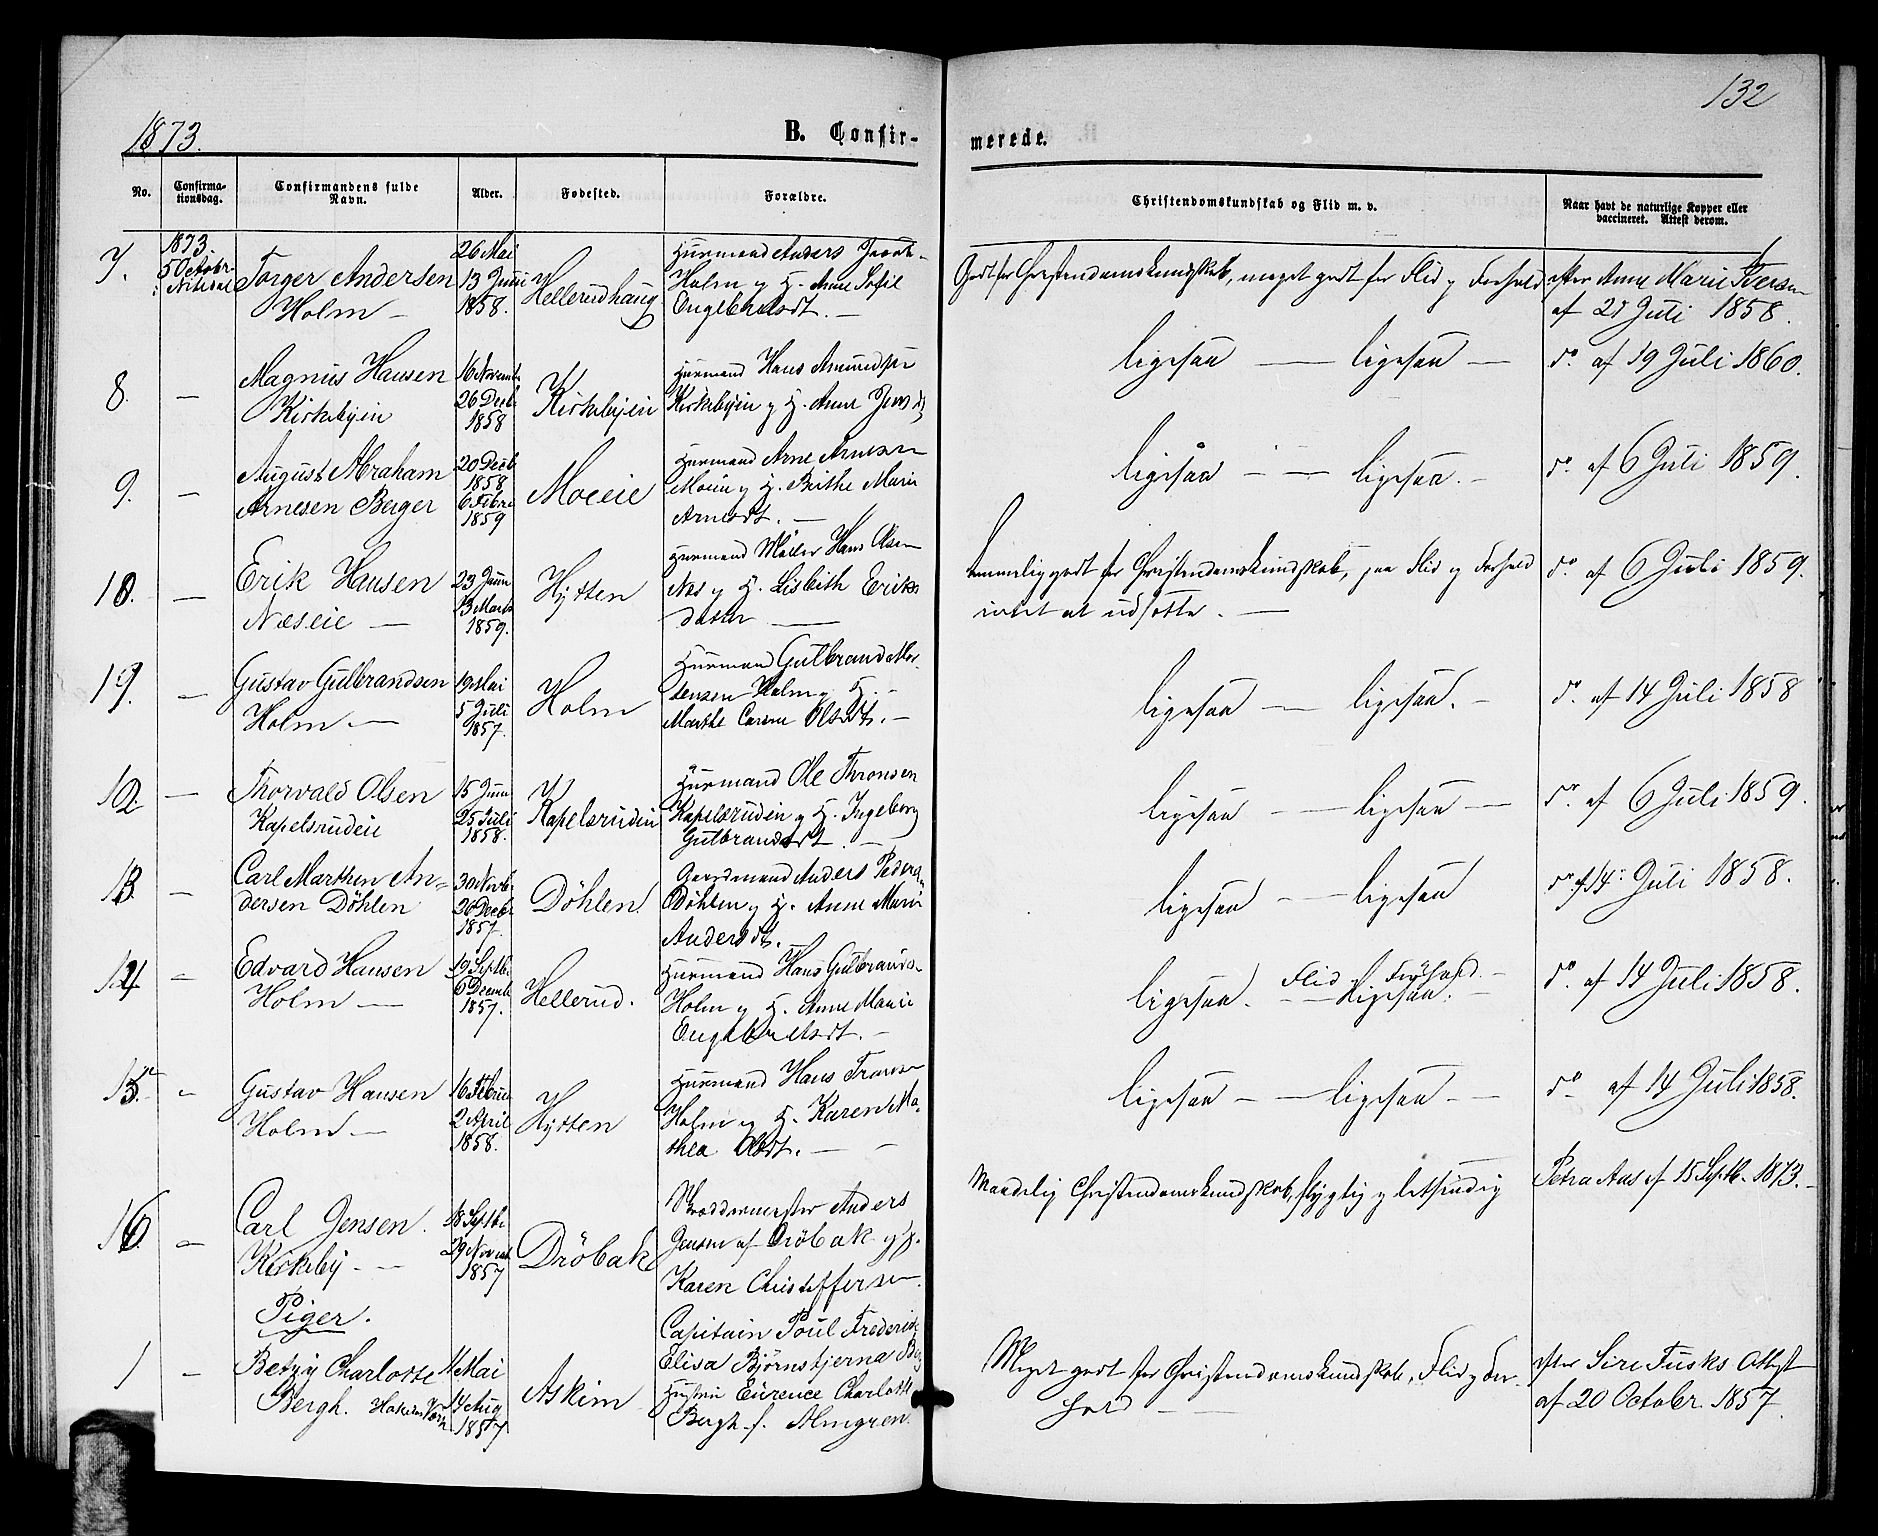 132
1873.
B. Confir-
merede.
No.
Confirma-
tionsdag.
Confirmandens fulde
Navn.
Alder.
Fødested.
Forældre.
Christendomskundskab og Flid m. v.
Naar havt de naturlige Kopper eller
vaccineret. Attest derom.
7.
1873.
5 Octobr.
Torger Andersen
Holm —
26 Mai
13 Juni
1858.
Hellerudhaug
Huusmand Anders
Holm og H. Anne Sofie
Engebretsdt. —
Godt for Christendomskundskab, meget godt for Flid og Forhold
efter Anne Marie Iversen
af 21 Juli 1858.
8. —
Magnus Hansen
Kirkebyein
16 Novemb
26 Decb
1858
Kirkebyein
Huusmand Hans Amundsen
Kirkebyein og H. Anne Jensd
ligesaa — ligesaa —
do af 19 Juli 1860.
9. —
August Abraham
Arnesen Berger
20 Decb
1858
6 Febr
1859
Moeeie
Huusmand Arne Arnesen
Moein og H. Birthe Marie
Arnesdt. —
ligesaa — — ligesaa. —
do. af 6 Juli 1859.
10. —
Erik Hansen
Næseie —
23 Janu
13 Marts
1859.
Hytten
Huusmand Møller Hans Olsen
Næs og H. Lisbeth Eriks
datter —
Temmelig godt for Christendomskundskab, paa Flid og Forhold
intet at udsætte. —
do. af 6 Juli 1859.
19. —
Gustav Gulbrandsen
Holm. —
19 Mai
5 Juli
1857.
Holm
Huusmand Gulbrand Mor
tensen Holm og H. —
Marthe Olsdt. —
ligesaa — ligesaa. —
do. af 14 Juli 1858
12. —
Thorvald Olsen
Kapelsrudeie
15 Juni
25 Juli
1858.
Kapelsrudein
Huusmand Ole Thronsen
Kapelsrudein og H. Ingeborg
Gulbrandsdt. —
ligesaa — ligesaa —
do. af 6 Juli 1859.
13. —
Carl Marthin An=
dersen Döhlen
30 Novb
20 Decbr
1857.
Döhlen
Gaardmand Anders Peders
Döhlen og H. Anne Marie
Andersdt.
ligesaa — — ligesaa
do af 14: Juli 1858.
14. —
Edvard Hansen
Holm —
19 Septb.
6 Decemb
1857.
Hellerud.
Huusmand Hans Gulbrands-
Holm og H. Anne Marie
Engebretsdt. —
ligesaa. Flid og Forhold. —
ligesaa.
do. af 14 Juli 1858.
15. —
Gustav Hansen
Holm —
16 Februar
2 April
1858.
Hytten
Huusmand Hans Tronsen
Holm og H. Karen Ma-
thea Olsdt. — —
ligesaa — — ligesaa — —
do af 14 Juli 1858.
16. —
Carl Jensen.
Kirkeby — —
18 Septbr
29 Novemb
1857
Dröbak
Skræddermester Anders
Jensen af Dröbak og H.
Karen Christoffersen.
Maadelig Christendomskundskab, flygtig og letsindig
Petra Aas af 15 Septb. 1873. —
Piger.
1 —
Betzy Charlotte
Bergh.
Mai
14 Aug
1857
Askim
Capitain Poul Frederik
Elisa Björnstjerna
Hustru Eurence Charlotte
Bergh f. Almgren.
Meget godt for Christendomskundskab, Flid og For-
hold — —
efter Siri Fusks Attest
af 20 October. 1857.